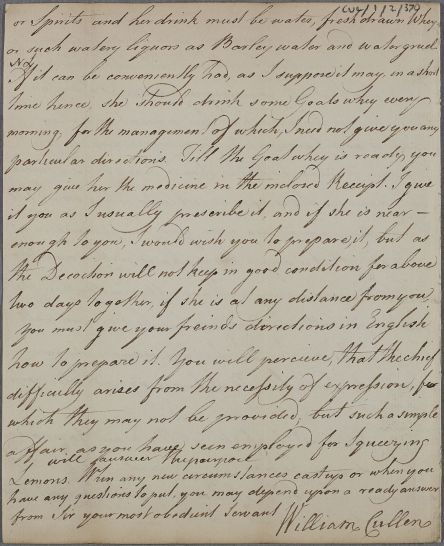 CUL/1/2/370
or Spirits and her drink must be water, fresh drawn Whey
or such watery liquors as Barley water and water gruel
No
If it can be conveniently had, as I suppose it may, in a short
time hence, she should drink some Goats whey every
morning, for the management of which, I need not give you any
particular directions. Till the Goat whey is ready, you
may give her the medicine in the inclosed Receipt. I give
it you as I usually prescribe it, and if she is near-
enough to you, I would wish you to prepare it, but as
the Decoction will not keep in good condition for above
two days together, if she is at any distance from you
you must give your freinds directions in English
how to prepare it. You will percieve, that the chief
difficulty arises from the necessity of expression, for
which they may not be provided, but such a simple
affair, as you have seen employed for squeezing
Lemons. will answer the purpose
When any new circumstances cast up or when you
have any questions to put, you may depend upon a ready answer
from Sir your most obedient Servant
William Cullen